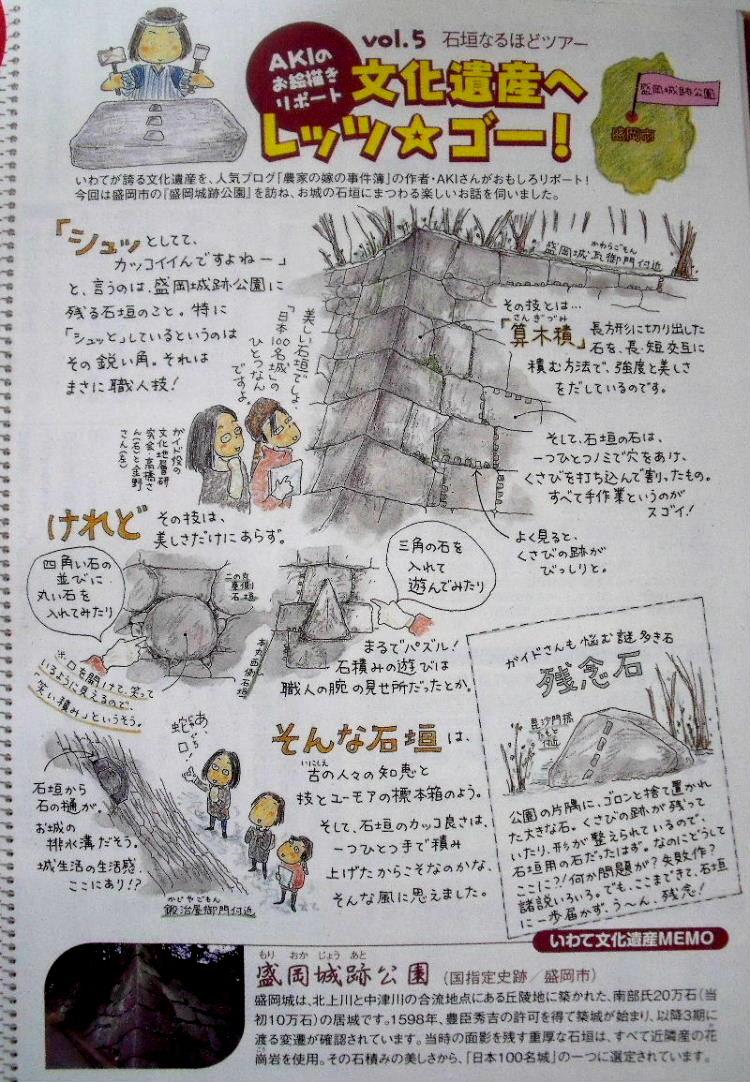 AKIの
お絵描き
リポート
vol.5 石垣なるほどツアー
文化遺産へ
レッツ☆ゴー!
盛岡城跡公園
盛岡市
いわてが誇る文化遺産を、人気ブログ「農家の嫁の事件簿」の作者・AKIさんがおもしろリポート!
今回は盛岡市の『盛岡城跡公園』を訪ね、お城の石垣にまつわる楽しいお話を伺いました。
「シュッとしてて、
カッコイイんですよねー」
と、言うのは、盛岡城跡公園に
残る石垣のこと。特に
「シュッと」しているというのは
その鋭い角。それは
まさに職人技!
美しい石垣でしょ。
「日本100名城」の
ひとつなん
ですよ。
ガイド役の
文化地層研
究会・高橋さ
ん(右)と金野
さん(左)
かわらごもん
盛岡城瓦御門付近
その技とは…
さんぎづみ
「算木積」長方形に切り出した
石を、長・短交互に
積む方法で、強度と美しさ
をだしているのです。
そして、石垣の石は、
一つひとつノミで穴をあけ、
くさびを打ち込んで割ったもの。
すべて手作業というのが
スゴイ!
よく見ると、
くさびの跡が
びっしりと。
けれど その技は、
美しさだけにあらず。
四角い石の
並びに
丸い石を
入れてみたり
二の丸
東側
石垣
三角の石を
入れて
遊んでみたり
本丸西側石垣
※口を開けて、笑って
いるように見えるので、
「笑い積み」というそう。
まるでパズル!
石積みの遊びは
職人の腕の見せ所だったとか。
ガイドさんも悩む謎多き石
残念石
毘沙門橋
たもと
付近
公園の片隅に、ゴロンと捨て置かれ
た大きな石。くさびの跡が残って
いたり、形が整えられているので、
石垣用の石だったはず。なのにどうして
ここに?!何か問題が?失敗作?
諸説いろいろ。でも、ここまできて、石垣
に一歩届かず。う〜ん、残念!
あ、
蛇
口!
石垣から
石の樋が。
お城の
排水溝だそう。
城生活の生活感、
ここにあり!?
かじやごもん
鍛冶屋御門付近
そんな石垣は、
いにしえ
古の人々の知恵と
技とユーモアの標本箱のよう。
そして、石垣のカッコ良さは、
一つひとつ手で積み
上げたからこそなのかな、
そんな風に思えました。
いわて文化遺産MEMO
もり おか じょう あと
盛岡城跡公園(国指定史跡/盛岡市)
盛岡城は、北上川と中津川の合流地点にある丘陵地に築かれた、南部氏20万石(当
初10万石)の居城です。1598年、豊臣秀吉の許可を得て築城が始まり、以降3期に
渡る変遷が確認されています。当時の面影を残す重厚な石垣は、すべて近隣産の花
こう
崗岩を使用。その石積みの美しさから、「日本100名城」の一つに選定されています。